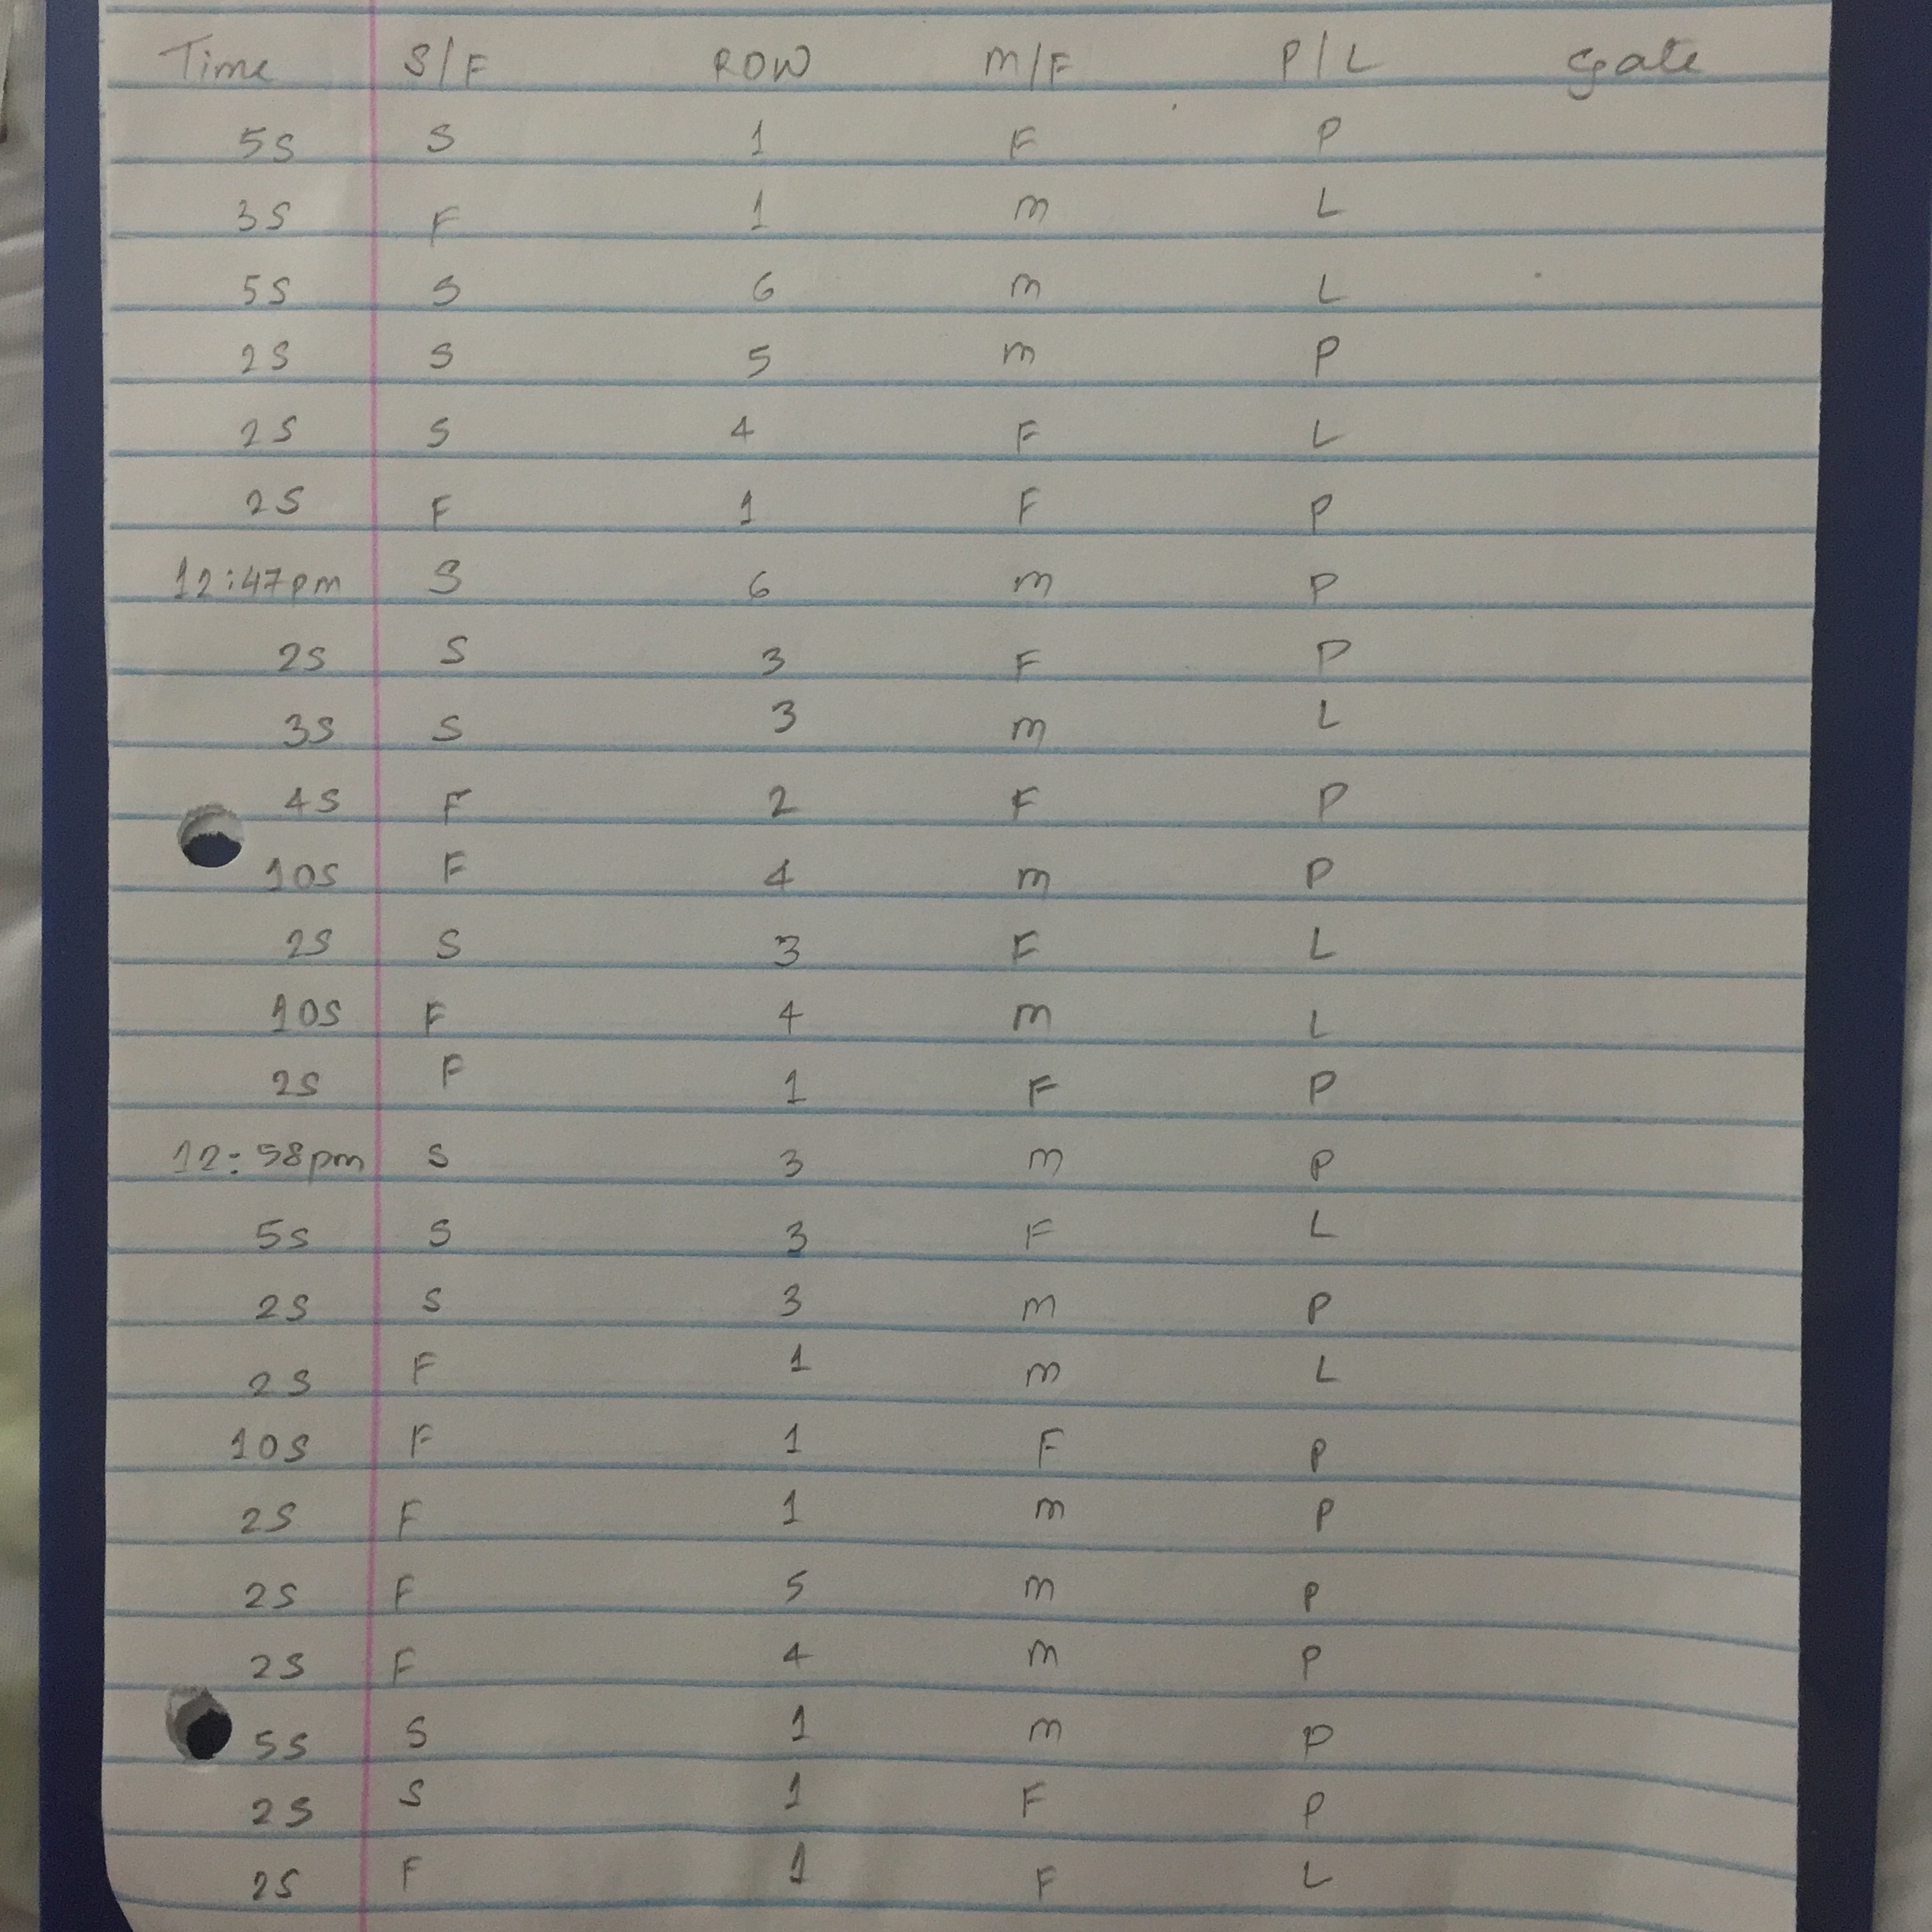 Time S/F ROW M/F P/L Gate
5S S 1 F P
3S F 1 m L
5S S 6 m L
2S S 5 m P
2S S 4 F L
2S F 1 F P
12:47pm S 6 m P
2S S 3 F P
3S S 3 m L
4S F 2 F P
10S F 4 m P
2S S 3 F L
10S F 4 m L
2S F 1 F P
12:58pm S 3 m P
5S S 3 F L
2S S 3 m P
2S F 1 m L
10S F 1 F P
2S F 1 m P
2S F 5 m P
2S F 4 m P
5S S 1 m P
2S S 1 F P
2S F 1 F L